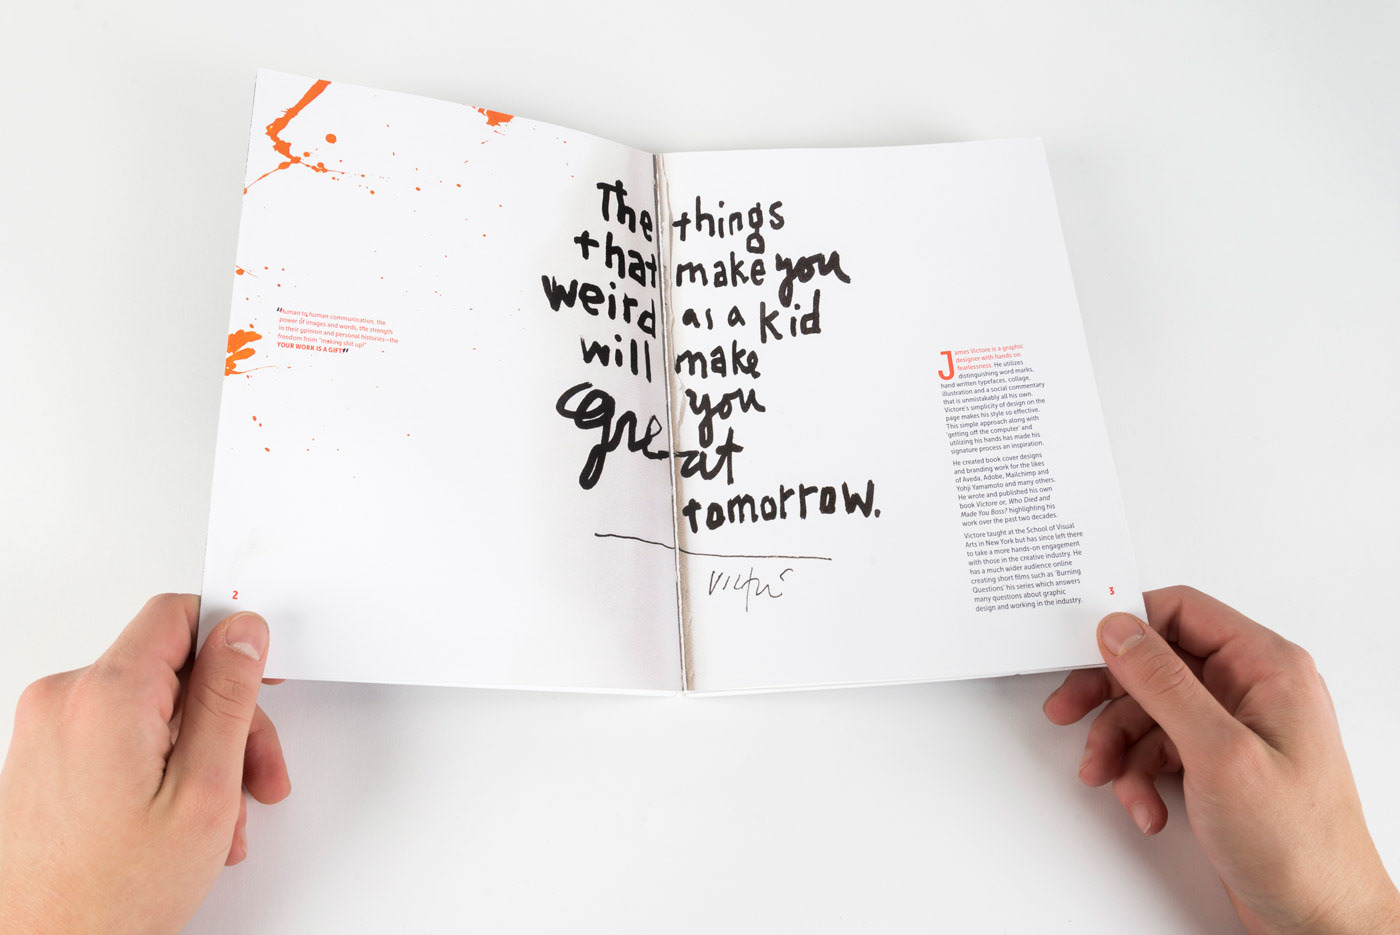 "Human to human communication, the
power of images and words, the strength
in their opinion and personal histories—the
freedom from "making shit up!"
YOUR WORK IS A GIFT"
2
The things
that make you
weird as a kid
will make
you
great
tomorrow.
Victore
James Victore is a graphic
designer with hands on
fearlessness. He utilizes
distinguishing word marks,
hand written typefaces, collage,
illustration and a social commentary
that is unmistakably all his own.
Victore's simplicity of design on the
page makes his style so effective.
This simple approach along with
'getting off the computer' and
utilizing his hands has made his
signature process an inspiration.
He created book cover designs
and branding work for the likes
of Aveda, Adobe, Mailchimp and
Yohji Yamamoto and many others.
He wrote and published his own
book Victore or, Who Died and
Made You Boss? highlighting his
work over the past two decades.
Victore taught at the School of Visual
Arts in New York but has since left there
to take a more hands-on engagement
with those in the creative industry. He
has a much wider audience online
creating short films such as 'Burning
Questions' his series which answers
many questions about graphic
design and working in the industry.
3